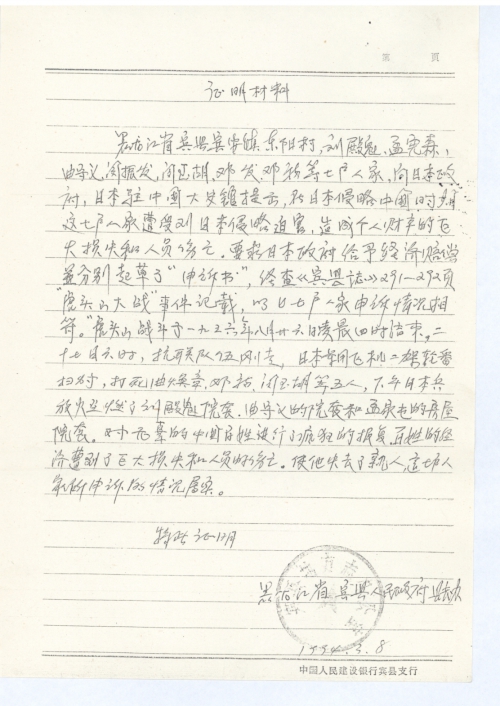 第 页
证明材料
黑龙江省宾县宾安镇东阳村，刘殿魁、孟宪森、
曲导义、闫振发、闫玉胡、邓发、邓 等七户人家，向日本政
府，日本驻中国大使馆提出，在日本侵略中国的时期
这七户人家遭受到日本侵略迫害，造成个人财产的巨
大损失和人员伤亡。要求日本政府给予经济赔偿
并分别起草了“申诉书”，经查《宾县志》291—292页
“虎头山大战”事件记载，以上七户人家申诉情况相
符。“虎头山战斗于一九三六年八月廿六日凌晨四时结束。二
十七日六时，抗联队伍刚走，日本军用飞机二架轮番
扫射，打死曲 章、邓 、闫玉胡等五人，下午日本兵
放火烧了刘殿魁院套、曲导义的院套和孟 的房屋
院套。对无辜的中国百姓进行了疯狂的报复，百姓的经
济遭到了巨大损失和人员的伤亡。使他失去了亲人，当事人
家所申诉的情况属实。
特此证明
黑龙江省宾县人民政府县志办
1994.3.8
中国人民建设银行宾县支行